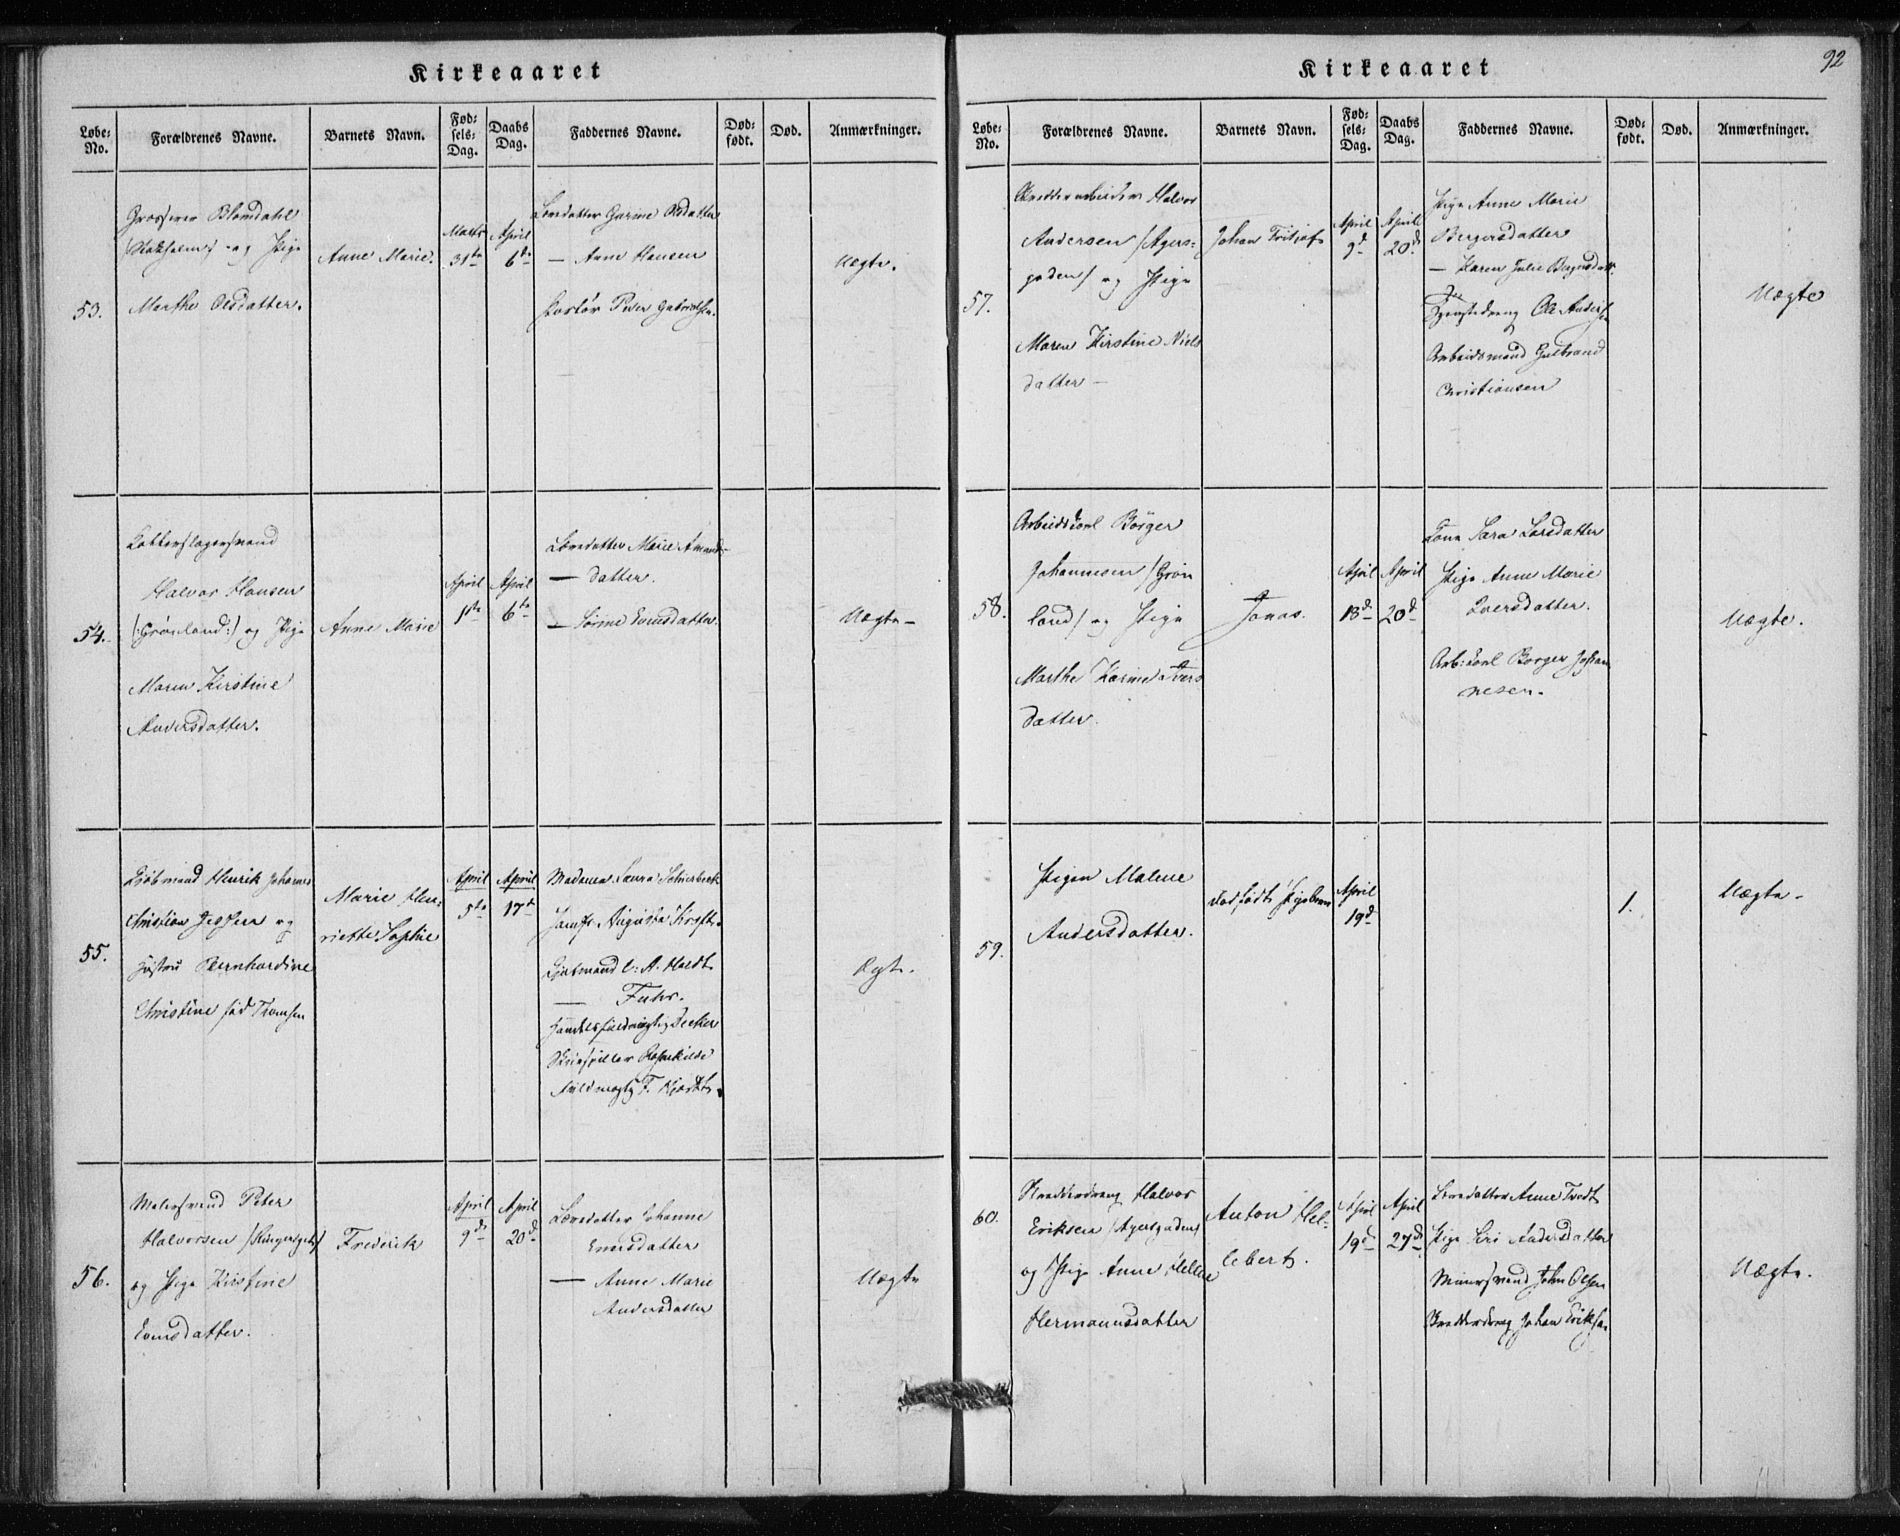 Kirkeaaret
Løbe-No.
Forældrenes Navne.
Barnets Navn.
Fødsels-Dag.
Daabs Dag.
Faddernes Navne.
Død-født.
Død.
Anmærkninger.
53.
Grosserer Blomdahl
og Pige
Marthe Olsdatter.
Anne Marie.
Marts
31te
April
6te
Gurine Olsdatter
— Anne Hansen
Peder Gabrielsen.
Uægte.
54.
Halvor Hansen
(:Grønland:) og Pige
Maren Kirstine
Andersdatter.
Anne Marie
April
1te
April
6te
Marie Amunds-
— datter.
— Sørine Evensdatter.
Uægte -
55.
Kjøbmand Henrik Johannes
Christian Jessen og
Hustru Bernhardine
Christine fød Thomsen
Marie Hen-
riette Sophie
April
5te
April
17de
Madame Laura
Jomfr. Augusta
Kjøbmand C. A. Holdt
— Fuhr.
Becker
Skuespiller Rosenkilde
F. Kjødt.
Ægte.
56.
Malersvend Peter
Halvorsen
og Pige Kirstine
Evensdatter.
Frederik
April
9de
April
20de
Johanne
Evensdatter
— Anne Marie
Andersdatter
Uægte
92
Kirkeaaret
Løbe-No.
Forældrenes Navne.
Barnets Navn.
Fødsels-Dag.
Daabs Dag.
Faddernes Navne.
Død-født.
Død.
Anmærkninger.
57.
Halvor
Andersen (Agers-
gaden) og Pige
Maren Kirstine Niels
datter —
Johan Fritjof
April
9d
April
20d
Pige Anne Marie
Bergersdatter
— Karen Julie
Tjenestedreng Ole Andersen
Arbeidsmand Gulbrand
Christiansen
Uægte
58.
Arbeidskarl Börger
Johannesen (Grøn
land) og Pige
Marthe Karine Ivers
datter.
Jonas.
April
18d
April
20d
Kone Sara Larsdatter
Pige Anne Marie
Iversdatter.
Arb:karl Borger Johan
nesen.
Uægte.
59.
Pigen Malene
Andersdatter.
dødfødt Pigebarn
April
19d
1.
Uægte -
60.
Skrædderdreng Halvor
Eriksen (Agersgaden)
og Pige Anne Helene
Hermannsdatter
Anton Hel-
lebert.
April
19d
April
27d
Anne Tvedt
Pige Siri Andersdatter
Murersvend John Olsen
Skrædderdreng Johan Eriksen
Uægte.